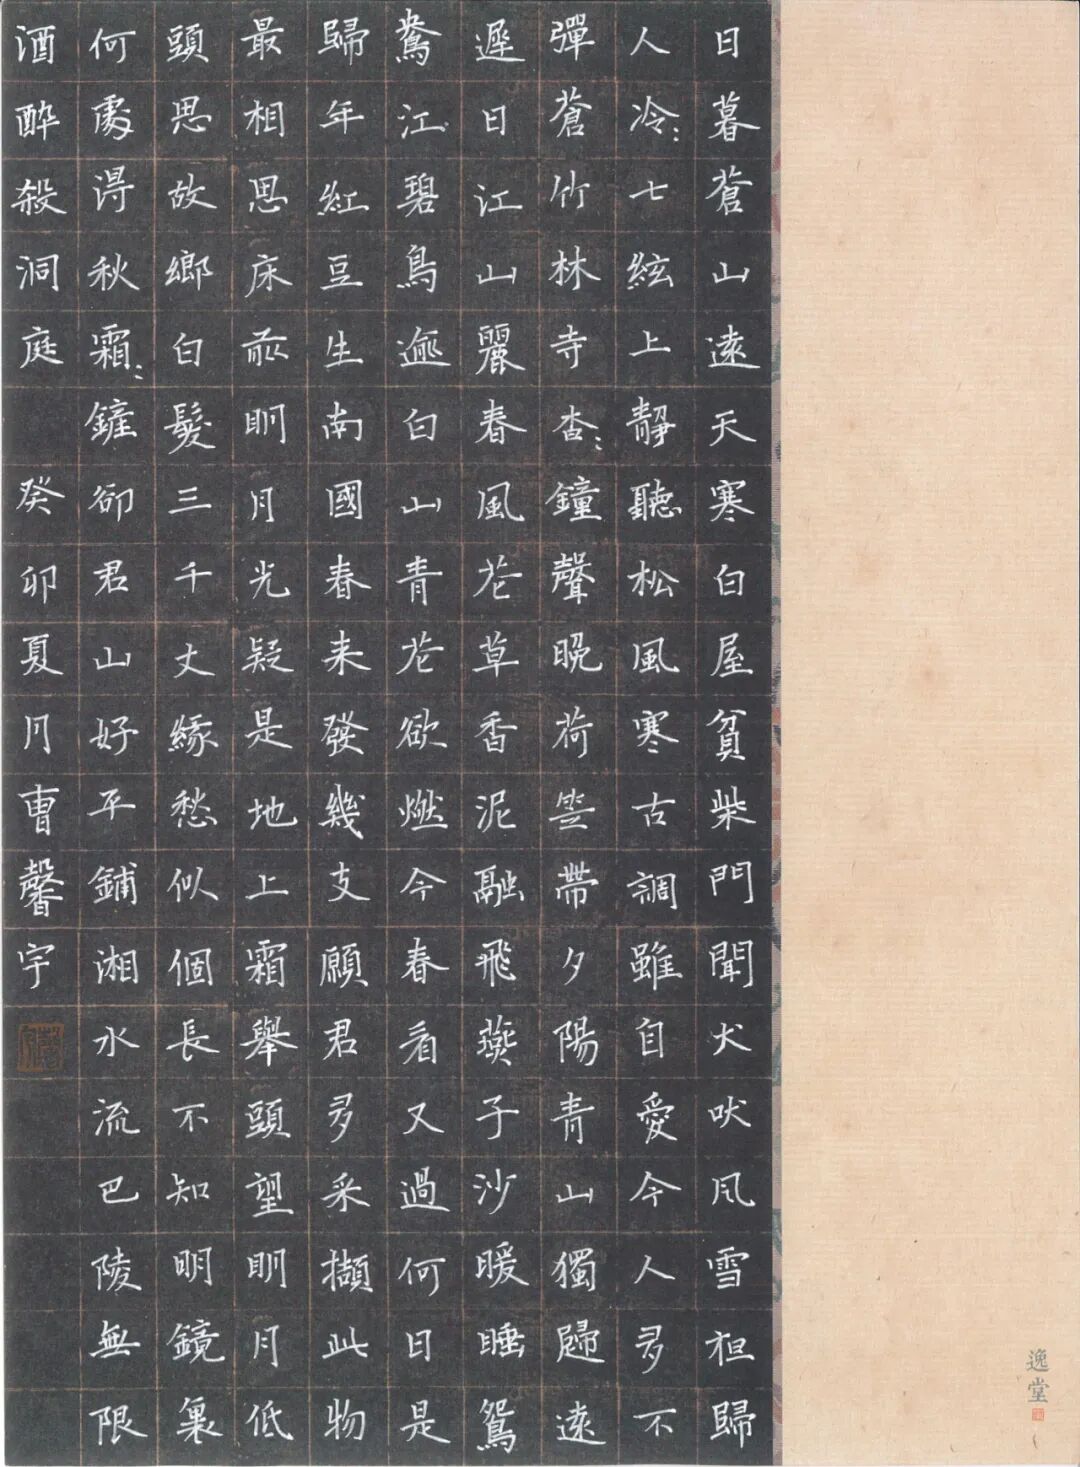 日暮蒼山遠天寒白屋貧柴門聞犬吠風雪夜歸
人冷〻七絃上靜聽松風寒古調雖自愛今人多不
彈蒼〻竹林寺杳〻鐘聲晚荷笠帶夕陽青山獨歸遠
遲日江山麗春風花草香泥融飛燕子沙暖睡鴛
鴦江〻碧鳥逾白山青花欲燃今春看又過何日是
歸年紅豆生南國春來發幾支願君多采擷此物
最相思床前明月光疑是地上霜舉頭望明月低
頭思故鄉白髮三千丈緣愁似個長不知明鏡裏
何處得秋霜〻鏟卻君山好平鋪湘水流巴陵無限
酒醉殺洞庭 癸卯夏月曹馨宇
逸堂